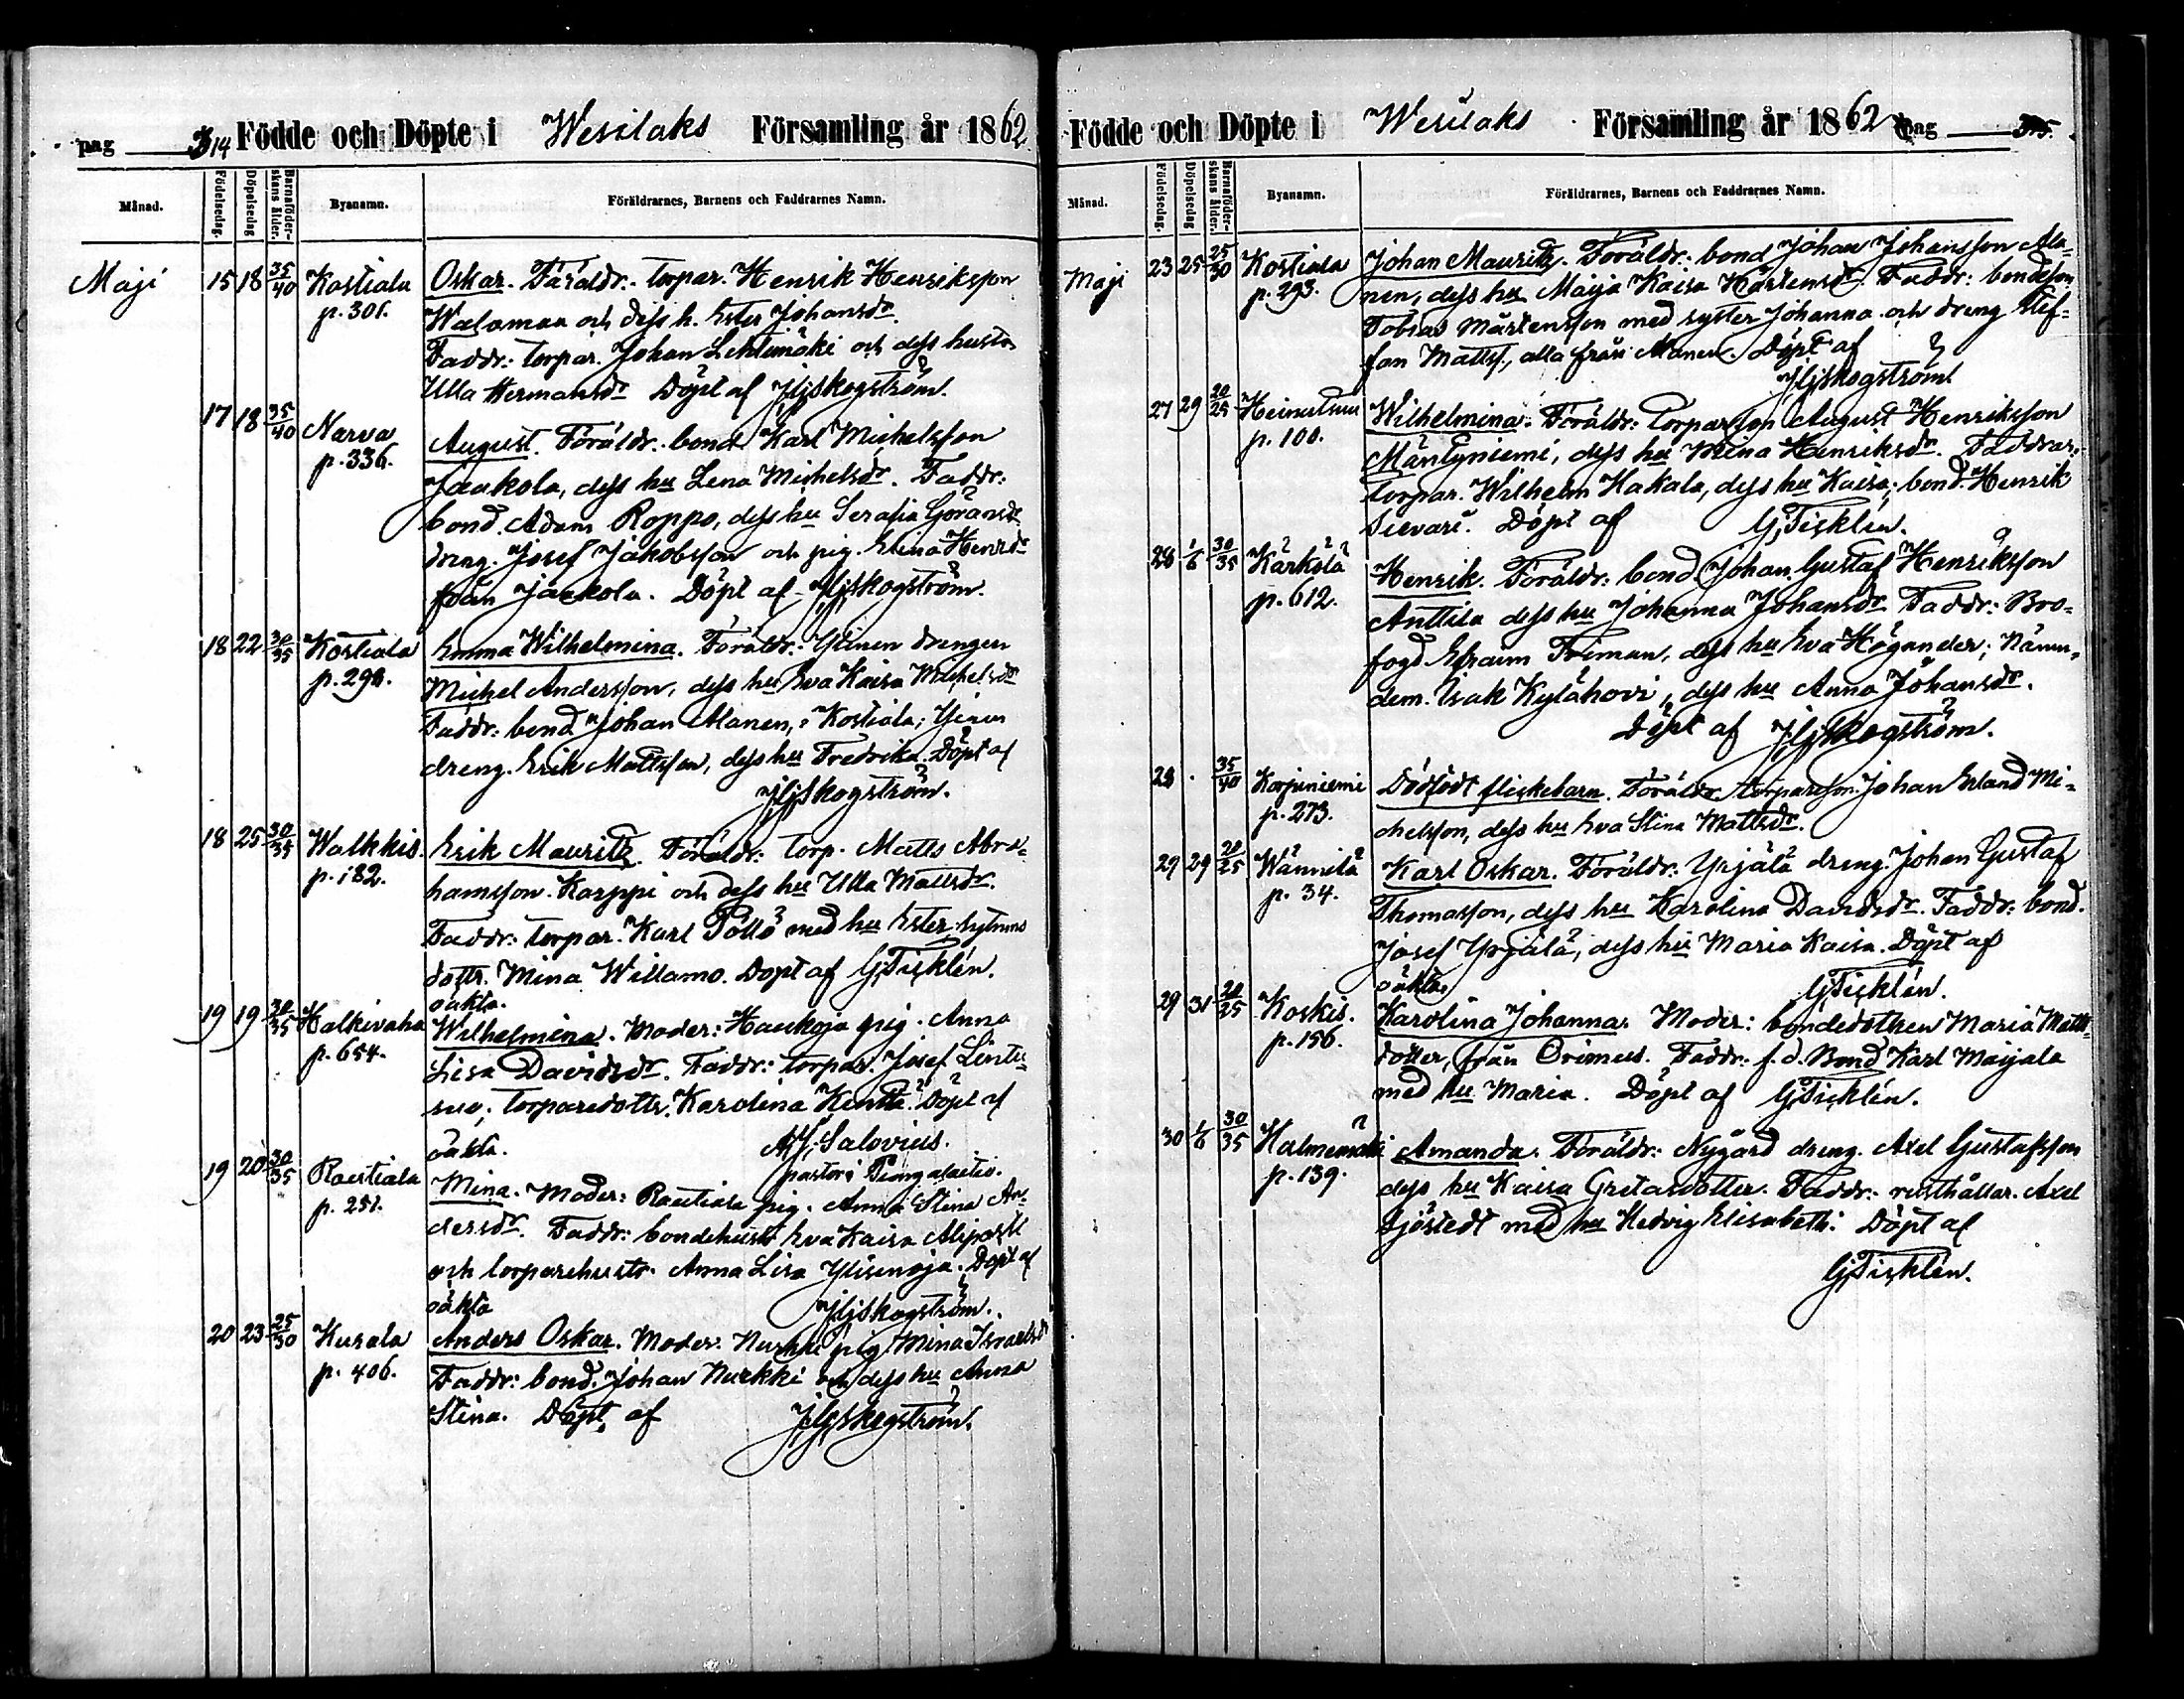 pag 314 Födde och Döpte i Wesilaks Församling år 1862.
Månad. Födelsedag. Döpelsedag Barnaföderskans ålder. Byanamn. Föräldrarnes, Barnens och Faddrarnes Namn.
Maji 15 18 35/40 Kostiala Oskar. Föräldr. torpar. Henrik Henriksson
p. 301. Walaman och dess h. Ester Johansdr.
Faddr: torpar. Johan Lehtimäki och dess hustr.
Ulla Hermansdr Döpt af JHjSkogström.
17 18 35/40 Narva August. Föräldr. bond Karl Michelsson
p. 336. Jaakola, dess hu Lena Michelsdr. Faddr:
bond. Adam Roppo, dess hu Serafia Göransdr
dreng. Josef Jakobsson och pig. Elina Henrsdr
från Jaakola. Döpt af JHjSkogström.
18 22 30/35 Kostiala Emma Wilhelmina. Föräldr. Ylinen drengen
p. 298. Michel Andersson, dess hu Eva Kaisa Michelsdr
Faddr: bond Johan Alanen, Kostiala; Ylinen
dreng. Erik Mattsson, dess hu Fredrika. Döpt af
JHjSkogström.
18 25 30/35 Walkkis. Erik Mauritz. Föräldr: torp. Matts Abra-
p. 182. hamsson Karppi och dess hu Ulla Mattsdr.
Faddr: torpar. Karl Pöllö med hu Ester
dottr. Mina Willamo. Döpt af GTicklén.
oäkta.
19 19 30/35 Halkivaha Wilhelmina. Moder: Haukoja pig. Anna
p. 654. Lisa Davidsdr. Faddr: torpar. Josef Lintu-
suo; torparedottr. Karolina Kenttä. Döpt af
oäkta. Salovius.
pastor i Pungalaitio.
19 20 30/35 Rautiala Mina. Moder: Rautiala pig. Anna Stina An-
p. 251. dersdr. Faddr: bondehustr Eva Kaisa Alipastl
och torparehustr. Anna Lisa Ylisenoja. Döpt af
oäkta JHjSkogström.
20 23 25/30 Kurala Anders Oskar. Moder. Nurkki pig Mina Israelsdr
p. 406. Faddr: bond. Johan Nurkki och dess hu Anna
Stina. Döpt af JHjSkogström.
Födde och Döpte i Wesilaks Församling år 1862 pag 315.
Månad. Födelsedag. Döpelsedag Barnaföderskans ålder. Byanamn. Föräldrarnes, Barnens och Faddrarnes Namn.
Maji 23 25 25/30 Kostiala Johan Mauritz. Föräldr: bond Johan Johansson Ala-
p. 293. nen, dess hu Maija Kaisa Mårtensdr. Faddr: bondeson
Tobias Mårtensson med syster Johanna och dreng Stef-
fan Mattss., alla från Alanen. Döpt af
JHjSkogström.
27 29 20/25 Heinutsuu Wilhelmina. Föräldr: torparson August Henriksson
p. 100. Mäntyniemi, dess hu Mina Henriksdr. Faddrar:
torpar. Wilhelm Hakala, dess hu Kaisa; bond. Henrik
Sievari. Döpt af GTicklén.
28 1/6 30/35 Kärkölä Henrik. Föräldr: bond. Johan Gustaf Henriksson
p. 612. Anttila dess hu Johanna Johansdr. Faddr: Bro-
fogd. Efraim Friman, dess hu Eva Högander; Nämn-
dem. Isak Kylähovi, dess hu Anna Johansdr.
Döpt af JHjSkogström.
28 . 35/40 Korpiniemi Dödfödt flickebarn. Föräldr. torpareson Johan Erland Mi-
p. 273. chelsson, dess hu Eva Stina Mattsdr.
29 29 20/25 Wännilä Karl Oskar. Föräldr: Yrjälä dreng. Johan Gustaf
p. 34. Thomasson, dess hu Karolina Davidsdr. Faddr: bond.
Josef Yrjälä, dess hu Maria Kaisa. Döpt af
oäkta GTicklén.
29 31 20/25 Koskis. Karolina Johanna. Moder: bondedottren Maria Matts-
p. 156. dotter, från Orimus. Faddr: f.d. Bond Karl Maijala
med hu Maria. Döpt af GTicklén.
30 1/6 30/35 Halmemäki Amanda. Föräldr: Nygård dreng. Axel Gustafsson
p. 139. dess hu Kaisa Gretasdotter. Faddr: rusthållar. Axel
Sjöstedt med hu Hedvig Elisabeth. Döpt af
GTicklén.